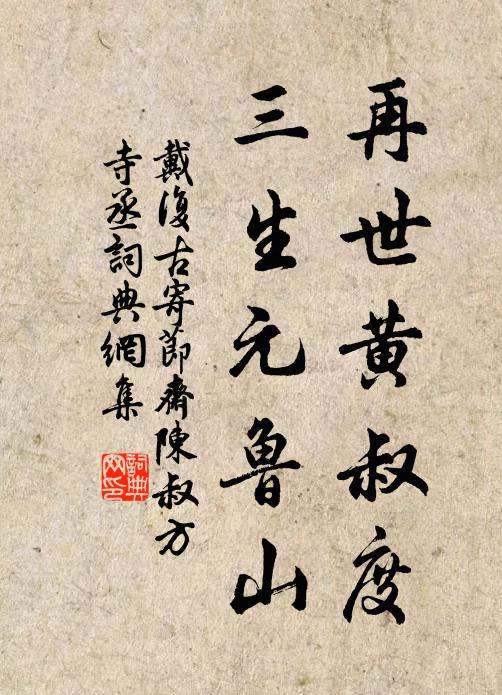 再世黄叔度
三生元魯山
戴復古寄節齋陳叔方
寺丞詞典網集
詞典網印